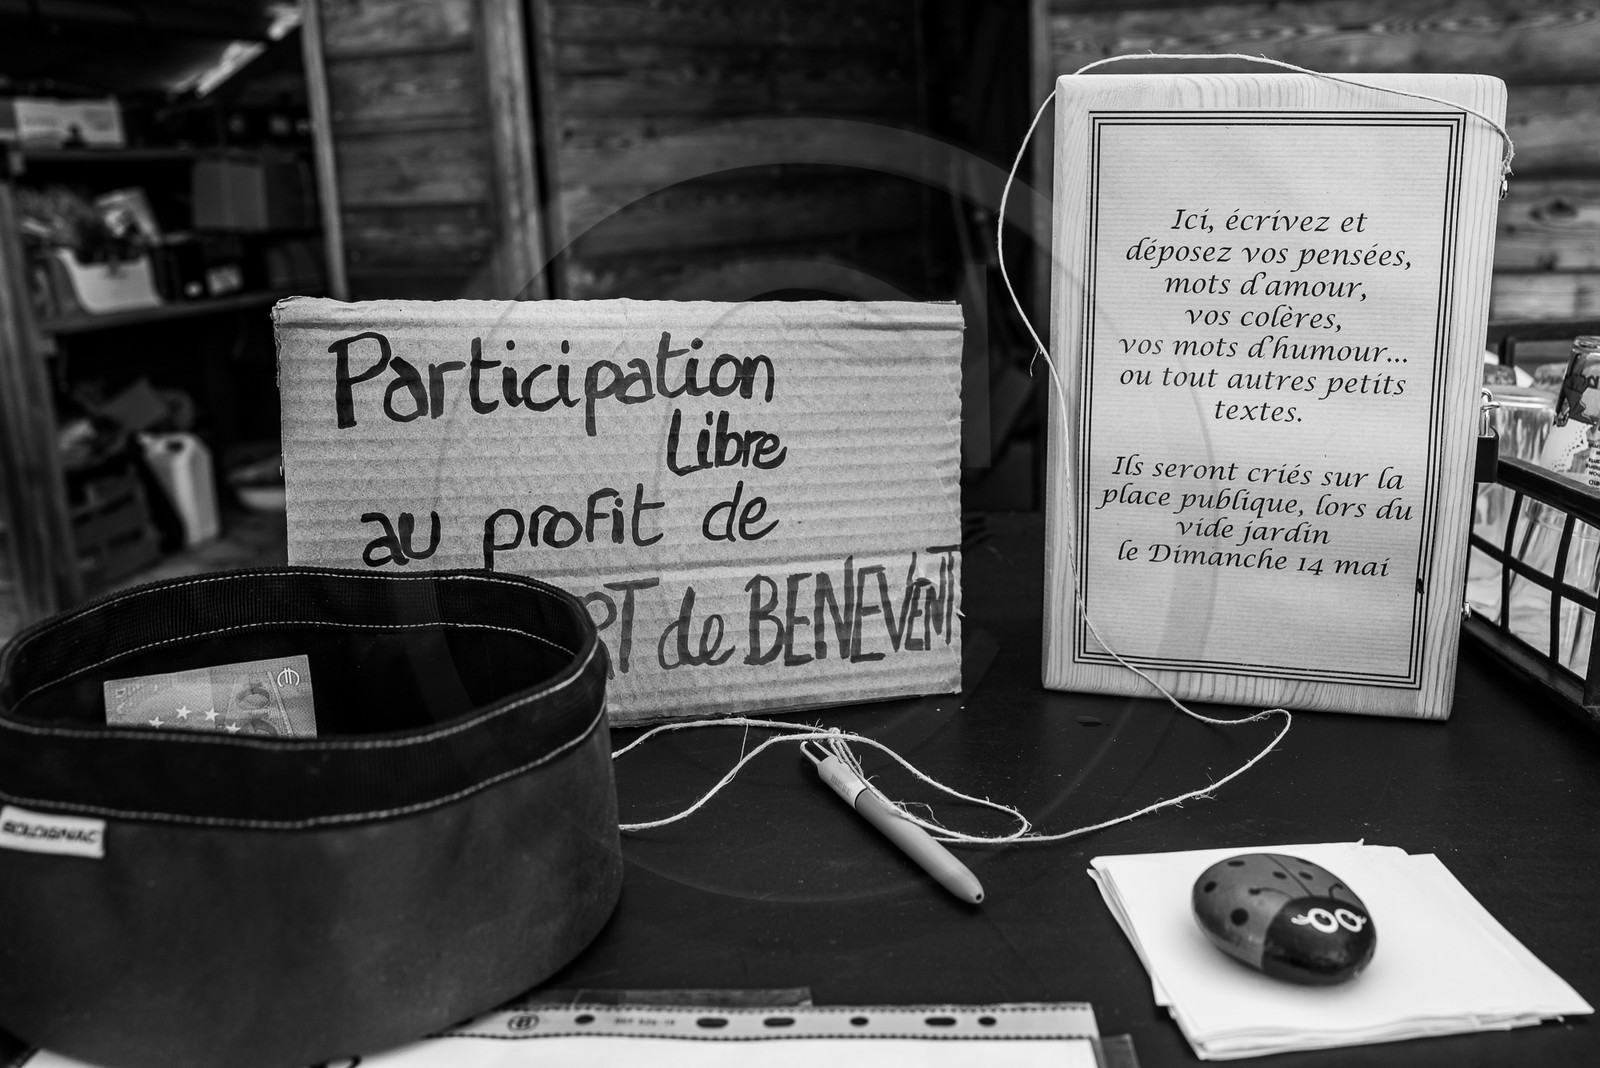 Participation
Libre
au profit de
de BENEVENT
Ici, écrivez et
déposez vos pensées,
mots d'amour,
vos colères,
vos mots d'humour...
ou tout autres petits
textes.
Ils seront criés sur la
place publique, lors du
vide jardin
le Dimanche 14 mai